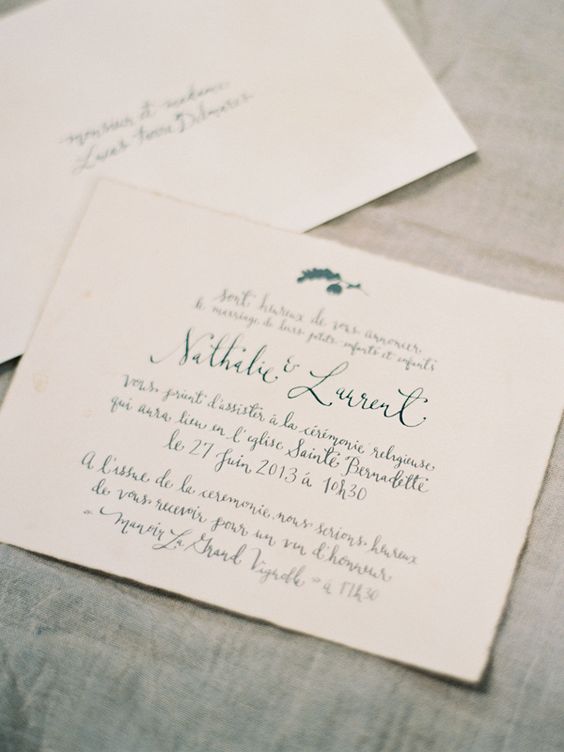 monsieur et madame
Lucas
sont heureux de vous annoncer
le mariage de leurs petits enfants et enfants
Nathalie & Laurent
vous prient d'assister à la cérémonie religieuse
qui aura lieu en l'église Sainte Bernadette
le 27 Juin 2013 à 10h30
A l'issue de la ceremonie, nous serions heureux
de vous recevoir pour un vin d'honneur
- Manoir La Grand Vignoble - à 11h30